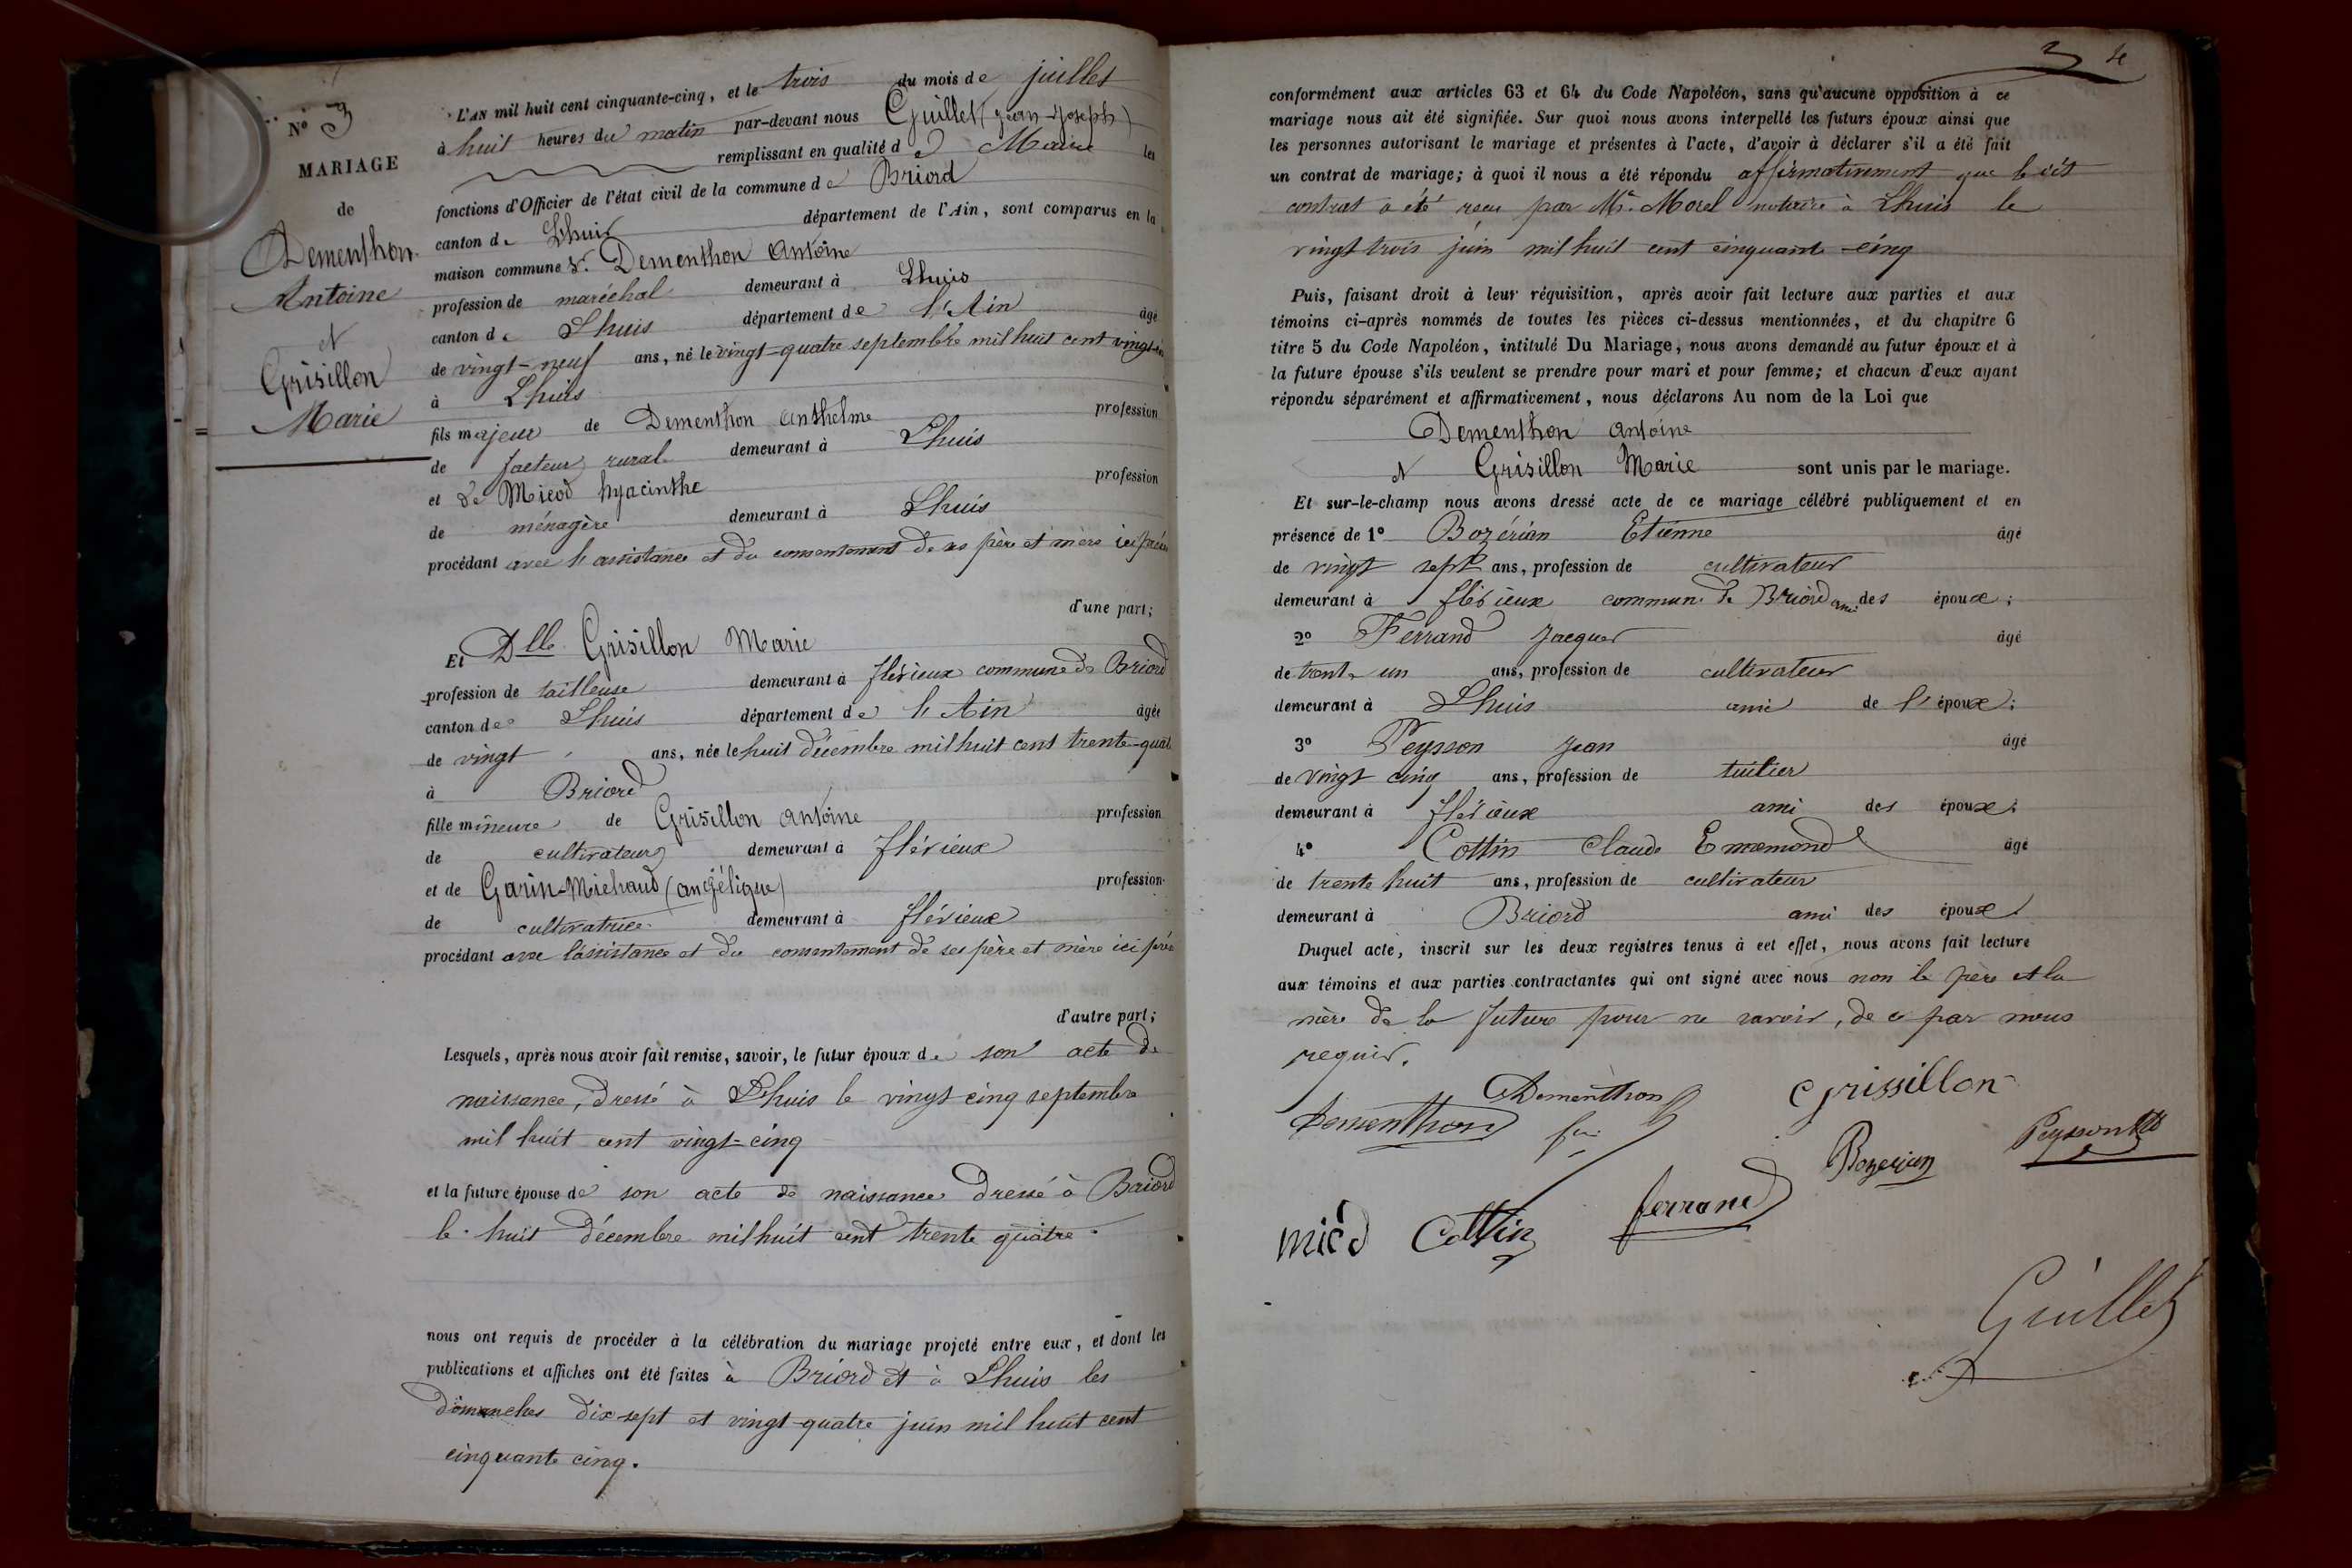 N° 3
MARIAGE
de
Dementhon
Antoine
et
Grisillon
Marie
L'AN mil huit cent cinquante-cinq, et le trois du mois de juillet
à huit heures du matin par-devant nous Guillet (jean-joseph)
remplissant en qualité de Maire les
fonctions d'Officier de l'état civil de la commune de Briord
canton de Lhuis département de l'Ain, sont comparus en la
maison commune Sr. Dementhon antoine
profession de maréchal demeurant à Lhuis
canton de Lhuis département de l'Ain âgé
de vingt-neuf ans, né le vingt-quatre septembre mil huit cent vingt-
à Lhuis
fils majeur de Dementhon anthelme profession
de facteur rural demeurant à Lhuis
et de Micod hyacinthe profession
de ménagère demeurant à Lhuis
procédant avec l'assistance et du consentement de ses père et mère ici
d'une part;
Et Dlle Grisillon Marie
profession de tailleuse demeurant à flérieux commune de Briord
canton de Lhuis département de l'Ain âgée
de vingt ans, née le huit décembre mil huit cent trente-quat
à Briord
fille mineure de Grisillon antoine profession
de cultivateur demeurant à flérieux
et de Garin-Michaud (angélique) profession
de cultivatrice demeurant à flérieux
procédant avec l'assistance et du consentement de ses père et mère ici
d'autre part;
Lesquels, après nous avoir fait remise, savoir, le futur époux de son acte de
naissance, dressé à Lhuis le vingt-cinq septembre
mil huit cent vingt-cinq
et la future épouse de son acte de naissance dressé à Briord
le huit décembre mil huit cent trente quatre.
nous ont requis de procéder à la célébration du mariage projeté entre eux, et dont les
publications et affiches ont été faites à Briord et à Lhuis les
dimanches dix-sept et vingt-quatre juin mil huit cent
cinquante cinq.
4
conformément aux articles 63 et 64 du Code Napoléon, sans qu'aucune opposition à ce
mariage nous ait été signifiée. Sur quoi nous avons interpellé les futurs époux ainsi que
les personnes autorisant le mariage et présentes à l'acte, d'avoir à déclarer s'il a été fait
un contrat de mariage; à quoi il nous a été répondu affirmativement que le dit
contrat a été reçu par Me. Morel notaire à Lhuis le
vingt trois juin mil huit cent cinquante-cinq
Puis, faisant droit à leur réquisition, après avoir fait lecture aux parties et aux
témoins ci-après nommés de toutes les pièces ci-dessus mentionnées, et du chapitre 6
titre 5 du Code Napoléon, intitulé Du Mariage, nous avons demandé au futur époux et à
la future épouse s'ils veulent se prendre pour mari et pour femme; et chacun d'eux ayant
répondu séparément et affirmativement, nous déclarons Au nom de la Loi que
Dementhon antoine
et Grisillon Marie sont unis par le mariage.
Et sur-le-champ nous avons dressé acte de ce mariage célébré publiquement et en
présence de 1° Bozérian Etienne âgé
de vingt sept ans, profession de cultivateur
demeurant à flérieux commune de Briord ami des époux;
2° Ferrand Jacques âgé
de trente un ans, profession de cultivateur
demeurant à Lhuis ami de l'époux;
3° Peysson Jean âgé
de vingt cinq ans, profession de tuilier
demeurant à flérieux ami des époux;
4° Cottin Claude Ennemond âgé
de trente huit ans, profession de cultivateur
demeurant à Briord ami des époux
Duquel acte, inscrit sur les deux registres tenus à cet effet, nous avons fait lecture
aux témoins et aux parties contractantes qui ont signé avec nous non le père et la
mère de la future pour ne savoir, de ce par nous
requis.
Dementhon Grissillon
Dementhon
Bozerian Peysson
micd Cottin ferrand
Guillet